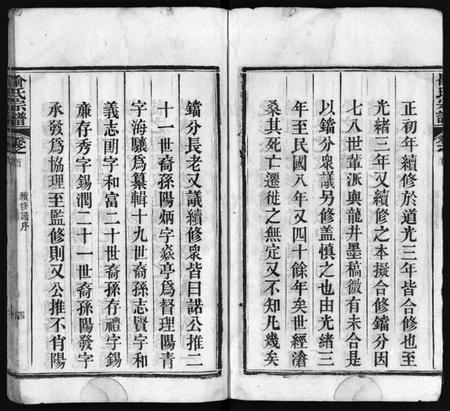 正初年續修於道光三年皆合修也至
光緒三年又續修之本擬合修鐺分因
七八世葉派與龍井墨稿微有未合是
以鐺分衆議另修蓋慎之也由光緒三
年至民國八年又四十餘年矣世經滄
桑其死亡遷徙之無定又不知凡幾矣
鐺分長老又議續修衆皆曰諾公推二
十一世裔孫陽炳字焱亭爲督理陽青
字海驤爲纂輯十九世裔孫志賢字和
義志朗字和富二十世裔孫存禮字錫
廉存秀字錫潤二十一世裔孫陽發字
承發爲協理至監修則又公推不肖陽
俞氏宗譜
卷之首
續修譜序
四